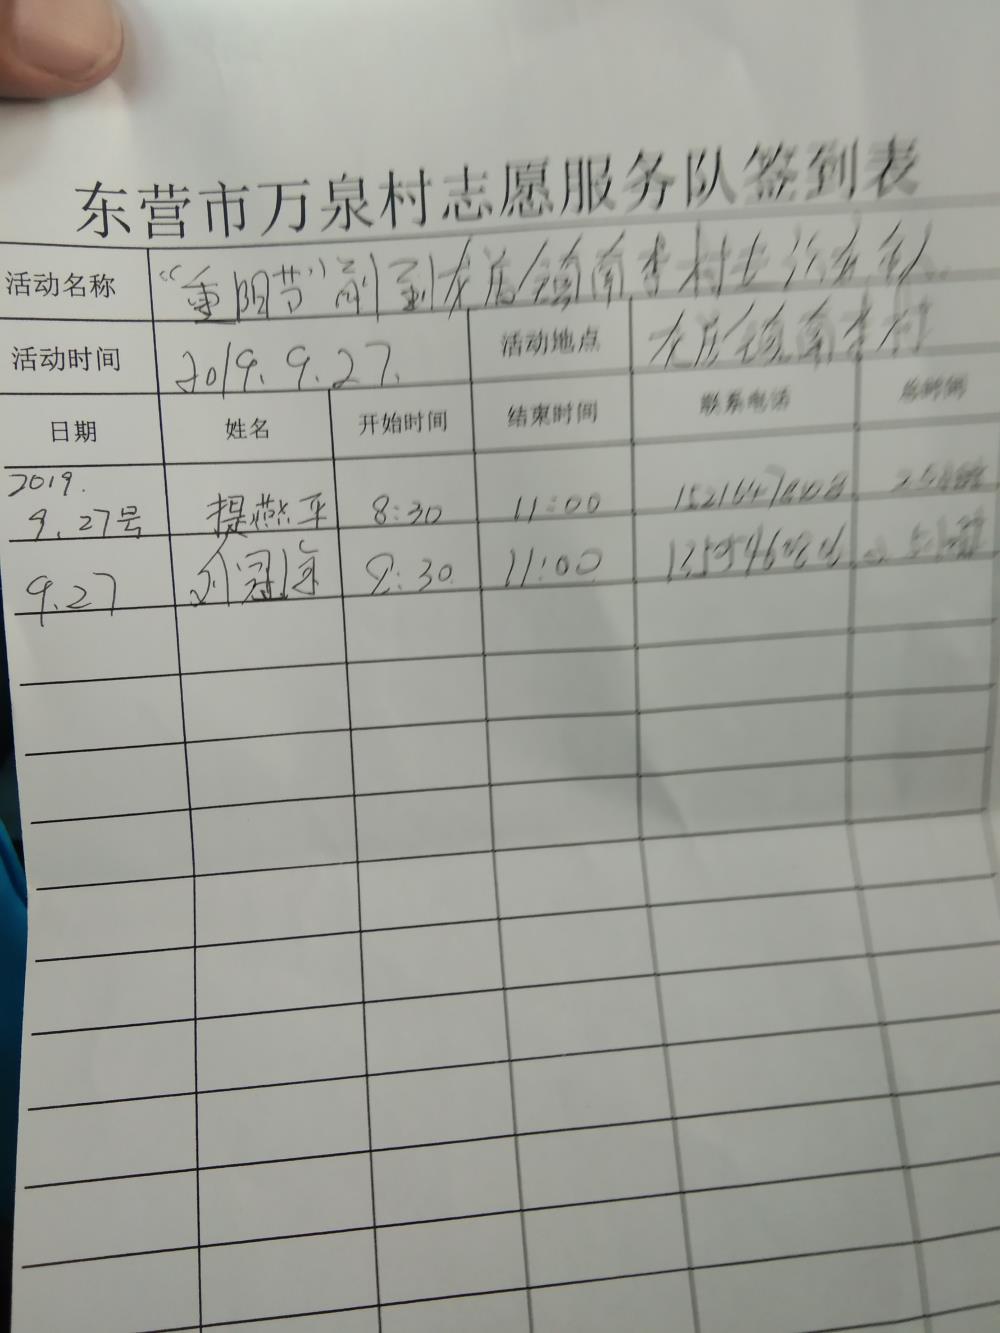 东营市万泉村志愿服务队签到表
活动名称 "重阳节"前到龙居镇南李村
活动时间 2019.9.27. 活动地点 龙居镇南李村
日期 姓名 开始时间 结束时间 联系电话 总时间
2019.
9.27号 提燕平 8:30 11:00
9.27 刘冠军 8:30 11:00